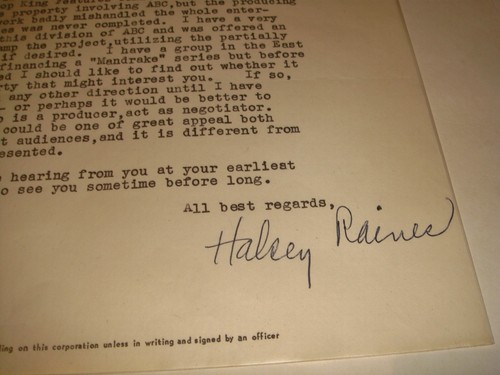 King Features
property involving ABC,but the producing
ork badly mishandled the whole enter-
es was never completed. I have a very
this division of ABC and was offered an
amp the project,utilizing the partially
if desired. I have a group in the East
financing a "Mandrake" series but before
d I should like to find out whether it
rty that might interest you. If so,
any other direction until I have
- or perhaps it would be better to
o is a producer,act as negotiator.
could be one of great appeal both
t audiences,and it is different from
esented.
e hearing from you at your earliest
o see you sometime before long.
All best regards,
Halsey Raines
ding on this corporation unless in writing and signed by an officer